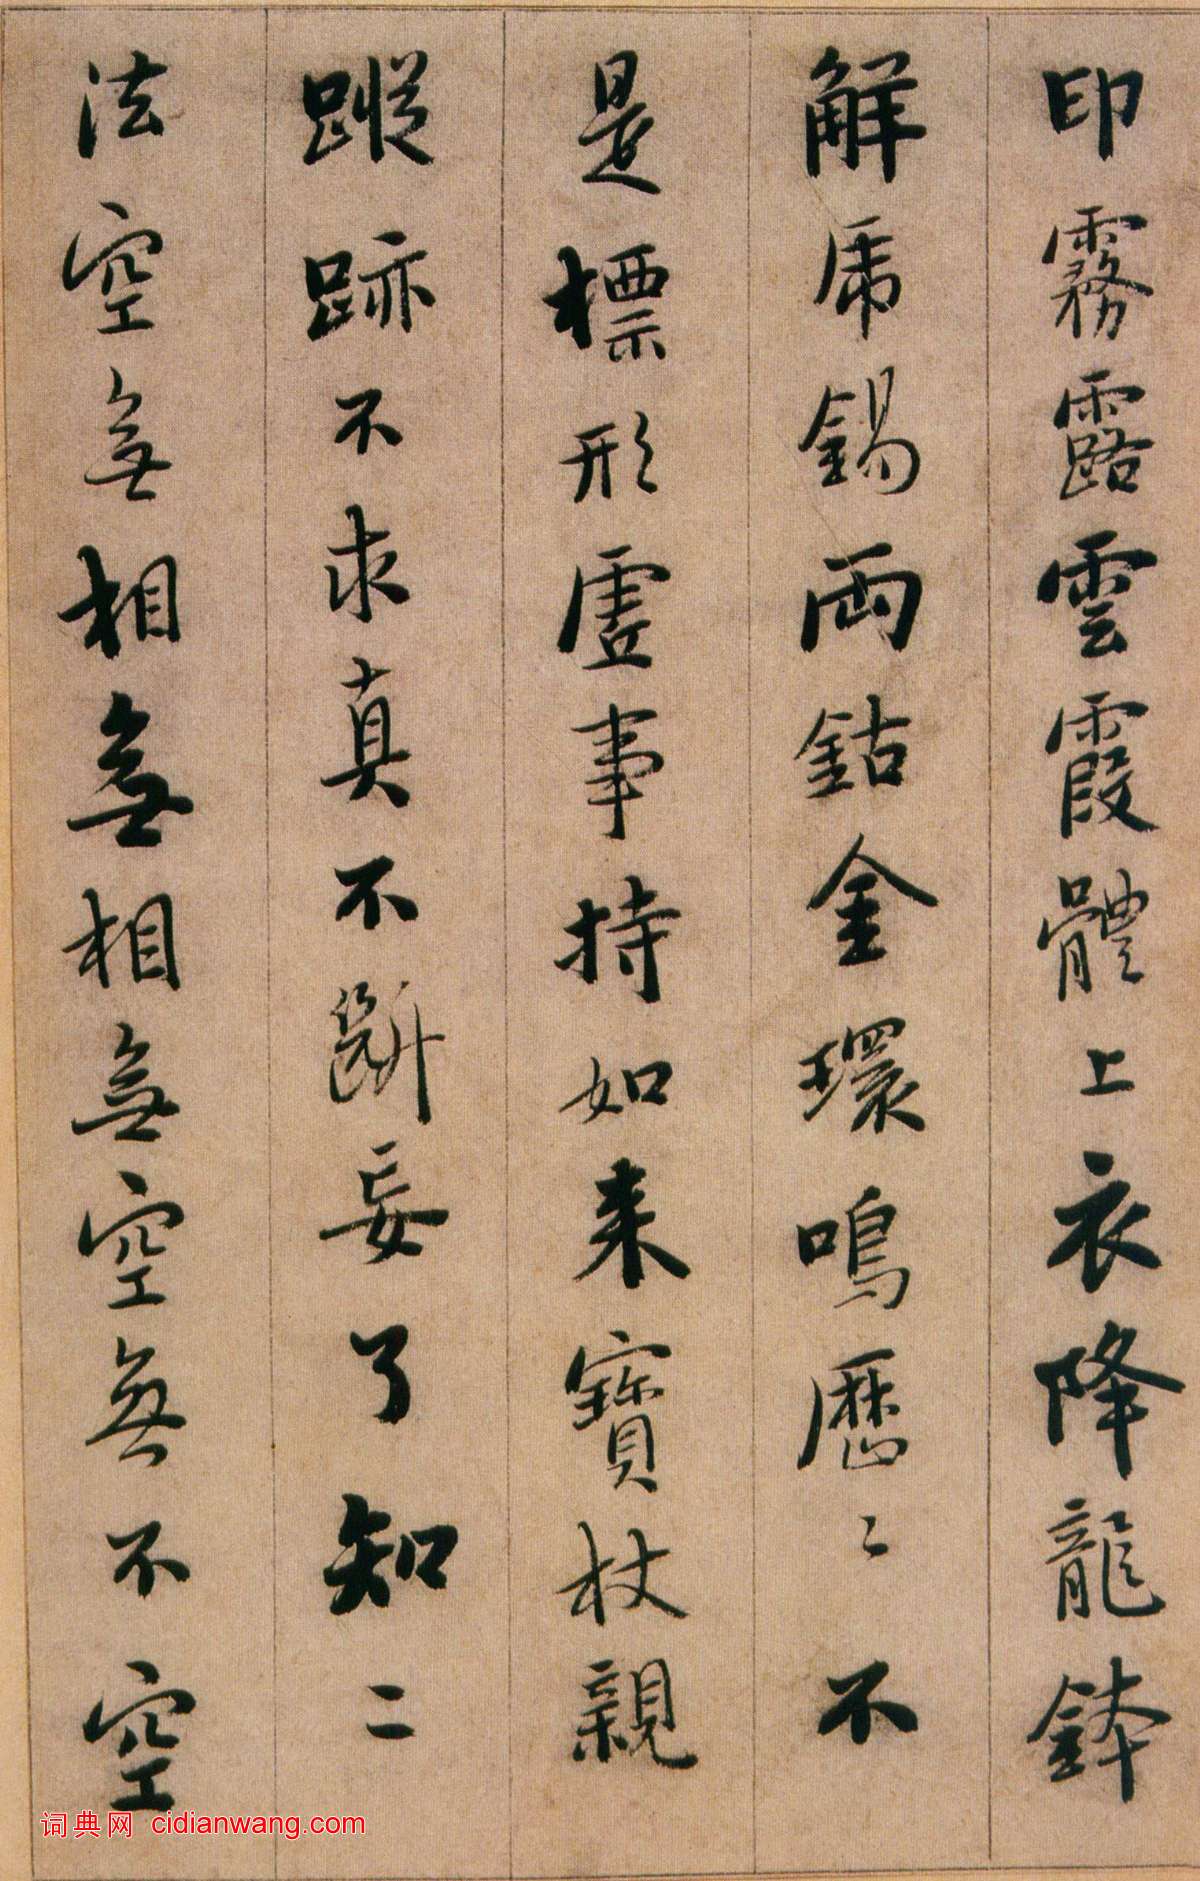 印霧露雲霞體上衣降龍鉢
解虎錫兩鈷金環鳴歷〻不
是標形虛事持如来寶杖親
蹤跡不求真不斷妄了知二
法空無相無相無空無不空
词典网 cidianwang.com